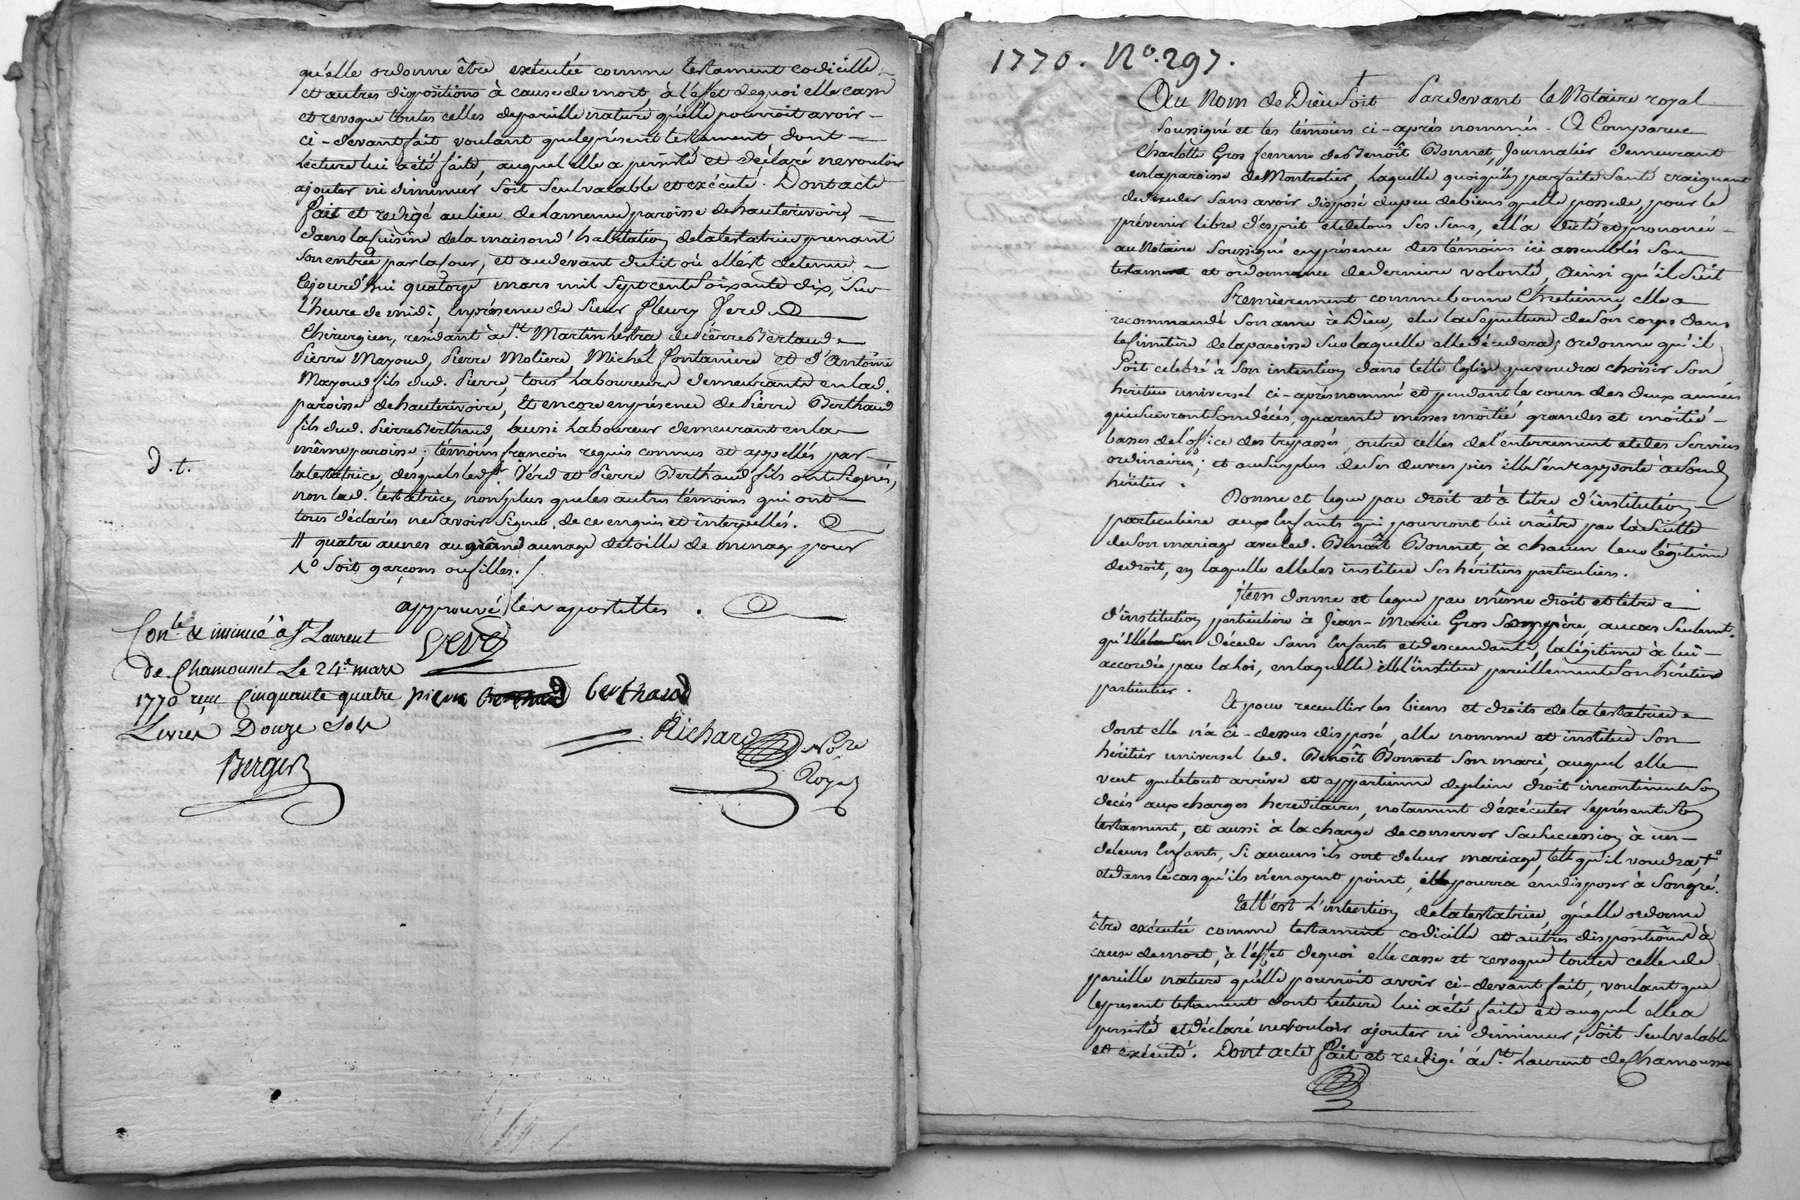 qu'elle ordonne être exécutée comme testament codicille
et autres dispositions à cause de mort, à l'effet dequoi elle casse
et revoque toutes celles depareille nature qu'elle pourroit avoir -
ci-devant fait voulant quele présent testament dont -
Lecture lui a été faite, auquel elle a persisté et déclaré nevouloir
ajouter ni diminuer soit seul valable et exécuté. Dont acte
fait et redigé au lieu de lamême paroisse de hauterivoire, -
dans la Cuisine de la maison d'habitation delatestatrice prenant
Son entrée par la Cour, et audevant du lit où elle est detenue -
Cejourd'hui quatorze mars mil sept cent soixante dix, sur
l'heure de midi, En présence de Sieur fleury Verd
Chirurgien, residant à St Martin Lestra de Pierre Bertaud
Pierre Mayoud, Pierre Moliere, Michel fontaniere et d'Antoine
Mayoud fils dud. Pierre, tous Laboureurs demeurants en lad.
paroisse de hauterivoire, Et encore en présence de Pierre Berthaud
fils dud. Pierre Berthaud, aussi Laboureur demeurant en la
même paroisse; témoins françois requis connus et appellés par
latestatrice, desquels led. Sr. Verd et Pierre Berthaud fils ont signés,
non lad. testatrice, non plus que les autres témoins qui ont
tous déclarés ne savoir signer, de ce enquis et interpellés.
d. t.
# quatre aunes aunage de toille de menage pour
soit garçons ou filles.
approuvé les apostilles.
Conlé & insinué à St Laurent
de Chamousset Le 24e mars
1770 reçu Cinquante quatre
Livres Douze Sols
Berger
Verd
pierre berthaud
Richard Nore
Royal
1770. No. 297.
Au Nom de Dieu soit Pardevant le Notaire royal
Soussigné et les témoins ci-après nommés - A Comparue
Charlotte Gros femme de Benoît Bonnet, Journalier demeurant
en la paroisse de Montrotier, Laquelle quoiqu'en parfaite santé craignant
de deceder sans avoir disposé du peu de biens qu'elle possede, pour le
prévenir libre d'esprit et de tous ses sens, ell'a dicté et prononcé -
au Notaire Soussigné en présence des témoins ici assemblés son
testament et ordonnance de derniere volonté, ainsi qu'il suit
Premièrement comme bonne Chrétienne, elle a
recommandé son ame à Dieu, elu la sepulture de son corps dans
le cimetiere de la paroisse sur laquelle elle décedera; ordonne qu'il
soit celebré à son intention dans telle Eglise que voudra choisir son
héritier universel ci-après nommé et pendant le cours des deux années
qui suivront son décès, quarante messes moitié grandes et moitié -
basses de l'office des trepassés, outre celles de l'enterrement et des services
ordinaires; et au surplus de ses œuvres pies ell s'en rapporte à son d.
héritier.
Donne et legue par droit et à titre d'institution -
particuliere aux Enfants qui pourront lui naître par la suitte
de son mariage avec led. Benoît Bonnet, à chacun leur légitime
de droit, en laquelle elle les institue ses héritiers particuliers.
Item donne et legue par même droit et titre
d'institution particuliere à Jean-Marie Gros son père, au cas seulemt.
qu'elle decede sans Enfants et descendants, la légitime à lui -
accordée par la loi, en laquelle elle l'institue pareillement son héritier
particulier.
Et pour recueillir les biens et droits de la testatrice
dont elle n'a ci-dessus disposé, elle nomme et institue son
héritier universel led. Benoît Bonnet son mari, auquel elle
veut que le tout arrive et appartienne deplein droit incontinent son
decès aux charges hereditaires, notament d'exécuter le présent
testament, et aussi à la charge de conserver sa succession à un -
de leurs Enfants, Si aucuns ils ont de leur mariage, tel qu'il voudra,
et dans le cas qu'ils n'en ayent point, il pourra en disposer à son gré.
Telle est L'intention de la testatrice, qu'elle ordonne
être exécutée comme testament codicille et autres dispositions à
cause de mort, à l'effet dequoi elle casse et revoque toutes celles de
pareille nature qu'elle pourroit avoir ci-devant fait, voulant que
le present testament dont Lecture lui a été faite et auquel elle a
persisté et déclaré ne vouloir ajouter ni diminuer, soit seul valable
et exécuté. Dont acte fait et redigé à St. Laurent de Chamousset